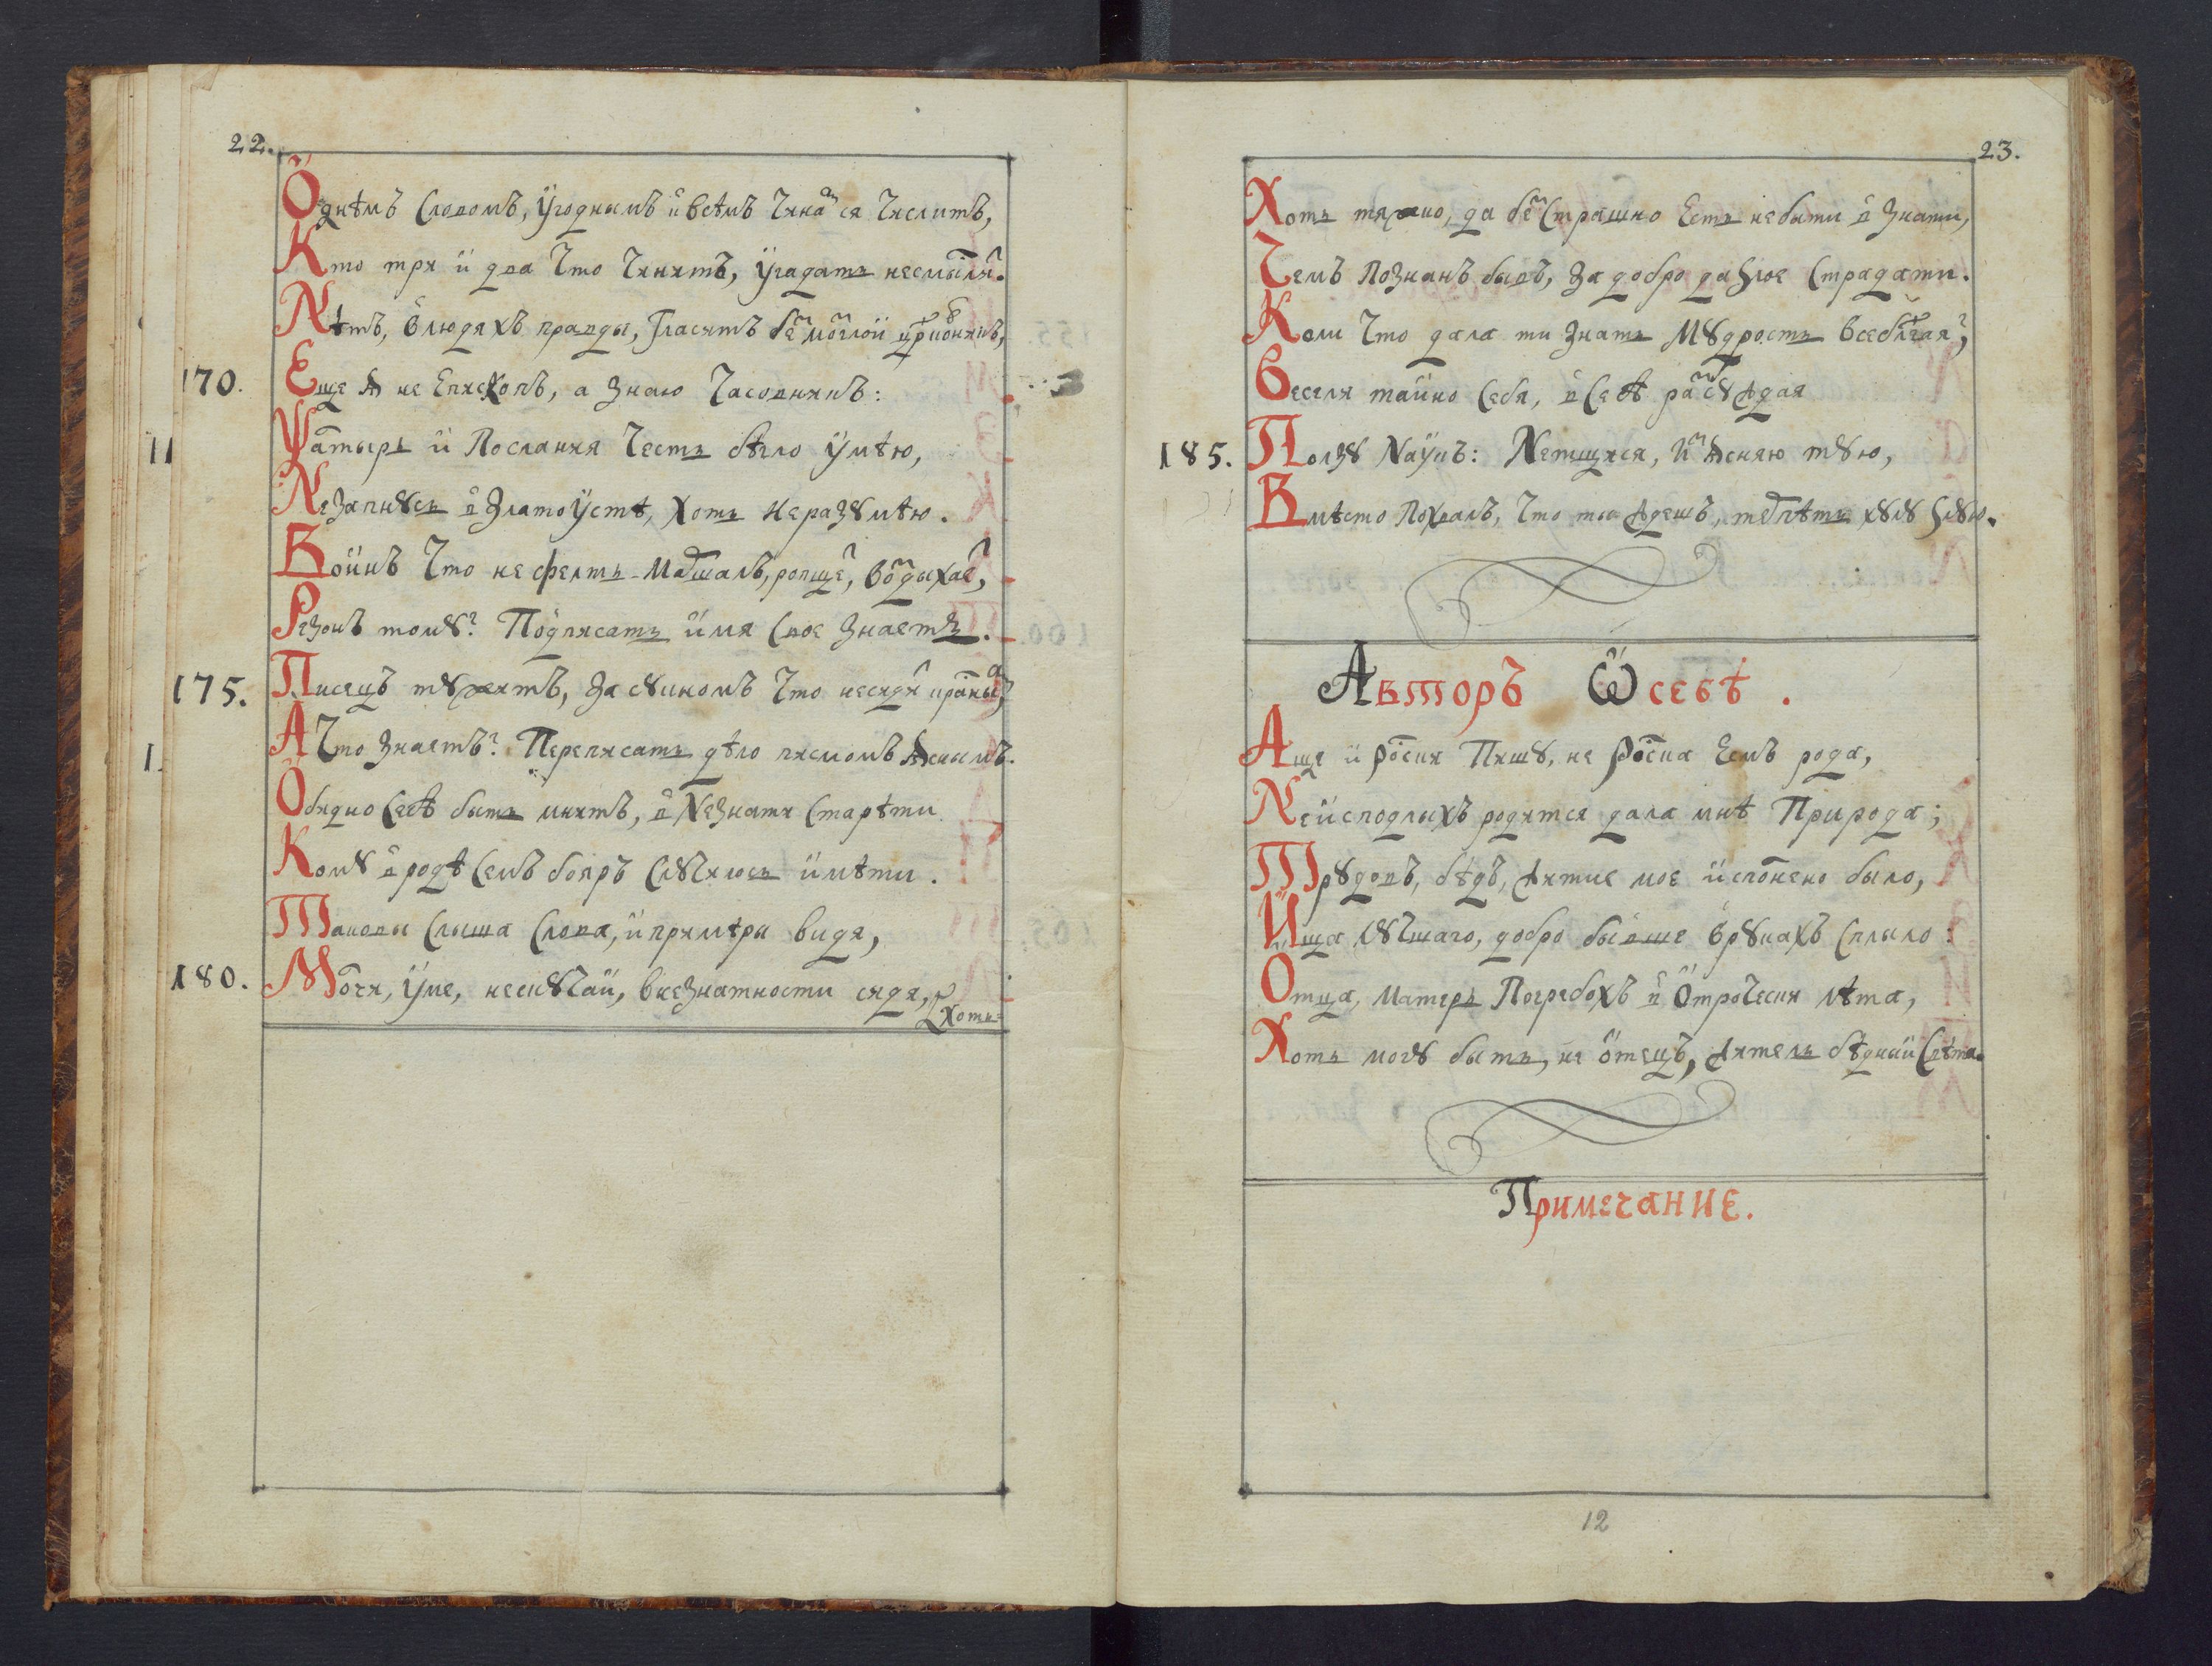 22.
Ѻднѣмъ словомъ, угоднымъ и всѣмъ чина ся числитъ,
Кто три и два что чинятъ, угадать несмыслит.
Нѣтъ, в людяхъ правды, гласятъ безмоглои црковникъ,
170. Еще ѧ не Епископъ, а знаю часовникъ:
Ѱатырь и Послания честь бѣло умѣю,
Незапнꙋсь в Златоустѣ, хоть неразꙋмѣю.
Воинъ что не фелтъ-Маршалъ, ропщет, воздыхает,
Резонъ томꙋ? Подписать имя свое знаетъ.
175. Писецъ тꙋжитъ, за сꙋкномъ что несидит красным,
А что знаетъ? Переписать дѣло писмомъ ѧснымъ.
Обидно себѣ быть мнитъ, в незнати старѣти
Комꙋ в родѣ семъ бояръ слꙋчилось имѣти.
Таковы слыша слова, и примѣры видя,
180. Молчи, уме, нескꙋчай, в незнатности сидя,
Хоть
23.
Хоть тяжко, да безстрашно есть небыти в знати,
Чемъ познанъ бывъ, за добро да ѕлое страдати.
Коли что дала ти знать мꙋдрость всеблгая,
Весели тайно себя, в себѣ разсꙋждая
185. Ползꙋ Наукъ: Нетщися, изъѧсняю тꙋю,
Вмѣсто похвалъ, что ты ждешъ, терпѣть хꙋлꙋ ѕлꙋю.
Авторъ Ѡ себѣ.
Аще и росски пишꙋ, не росска есмъ рода,
Не исподлыхъ родится дала мнѣ Природа;
Трꙋдовъ, бѣдъ, житие мое исполнено было,
Ища лꙋчшаго, добро бывше в рꙋкахъ сплыло:
Отца, матерь погребохъ в отрочески лѣта,
Хоть могꙋ быть, не отецъ, житель бѣдный свѣта.
Примечание.
12